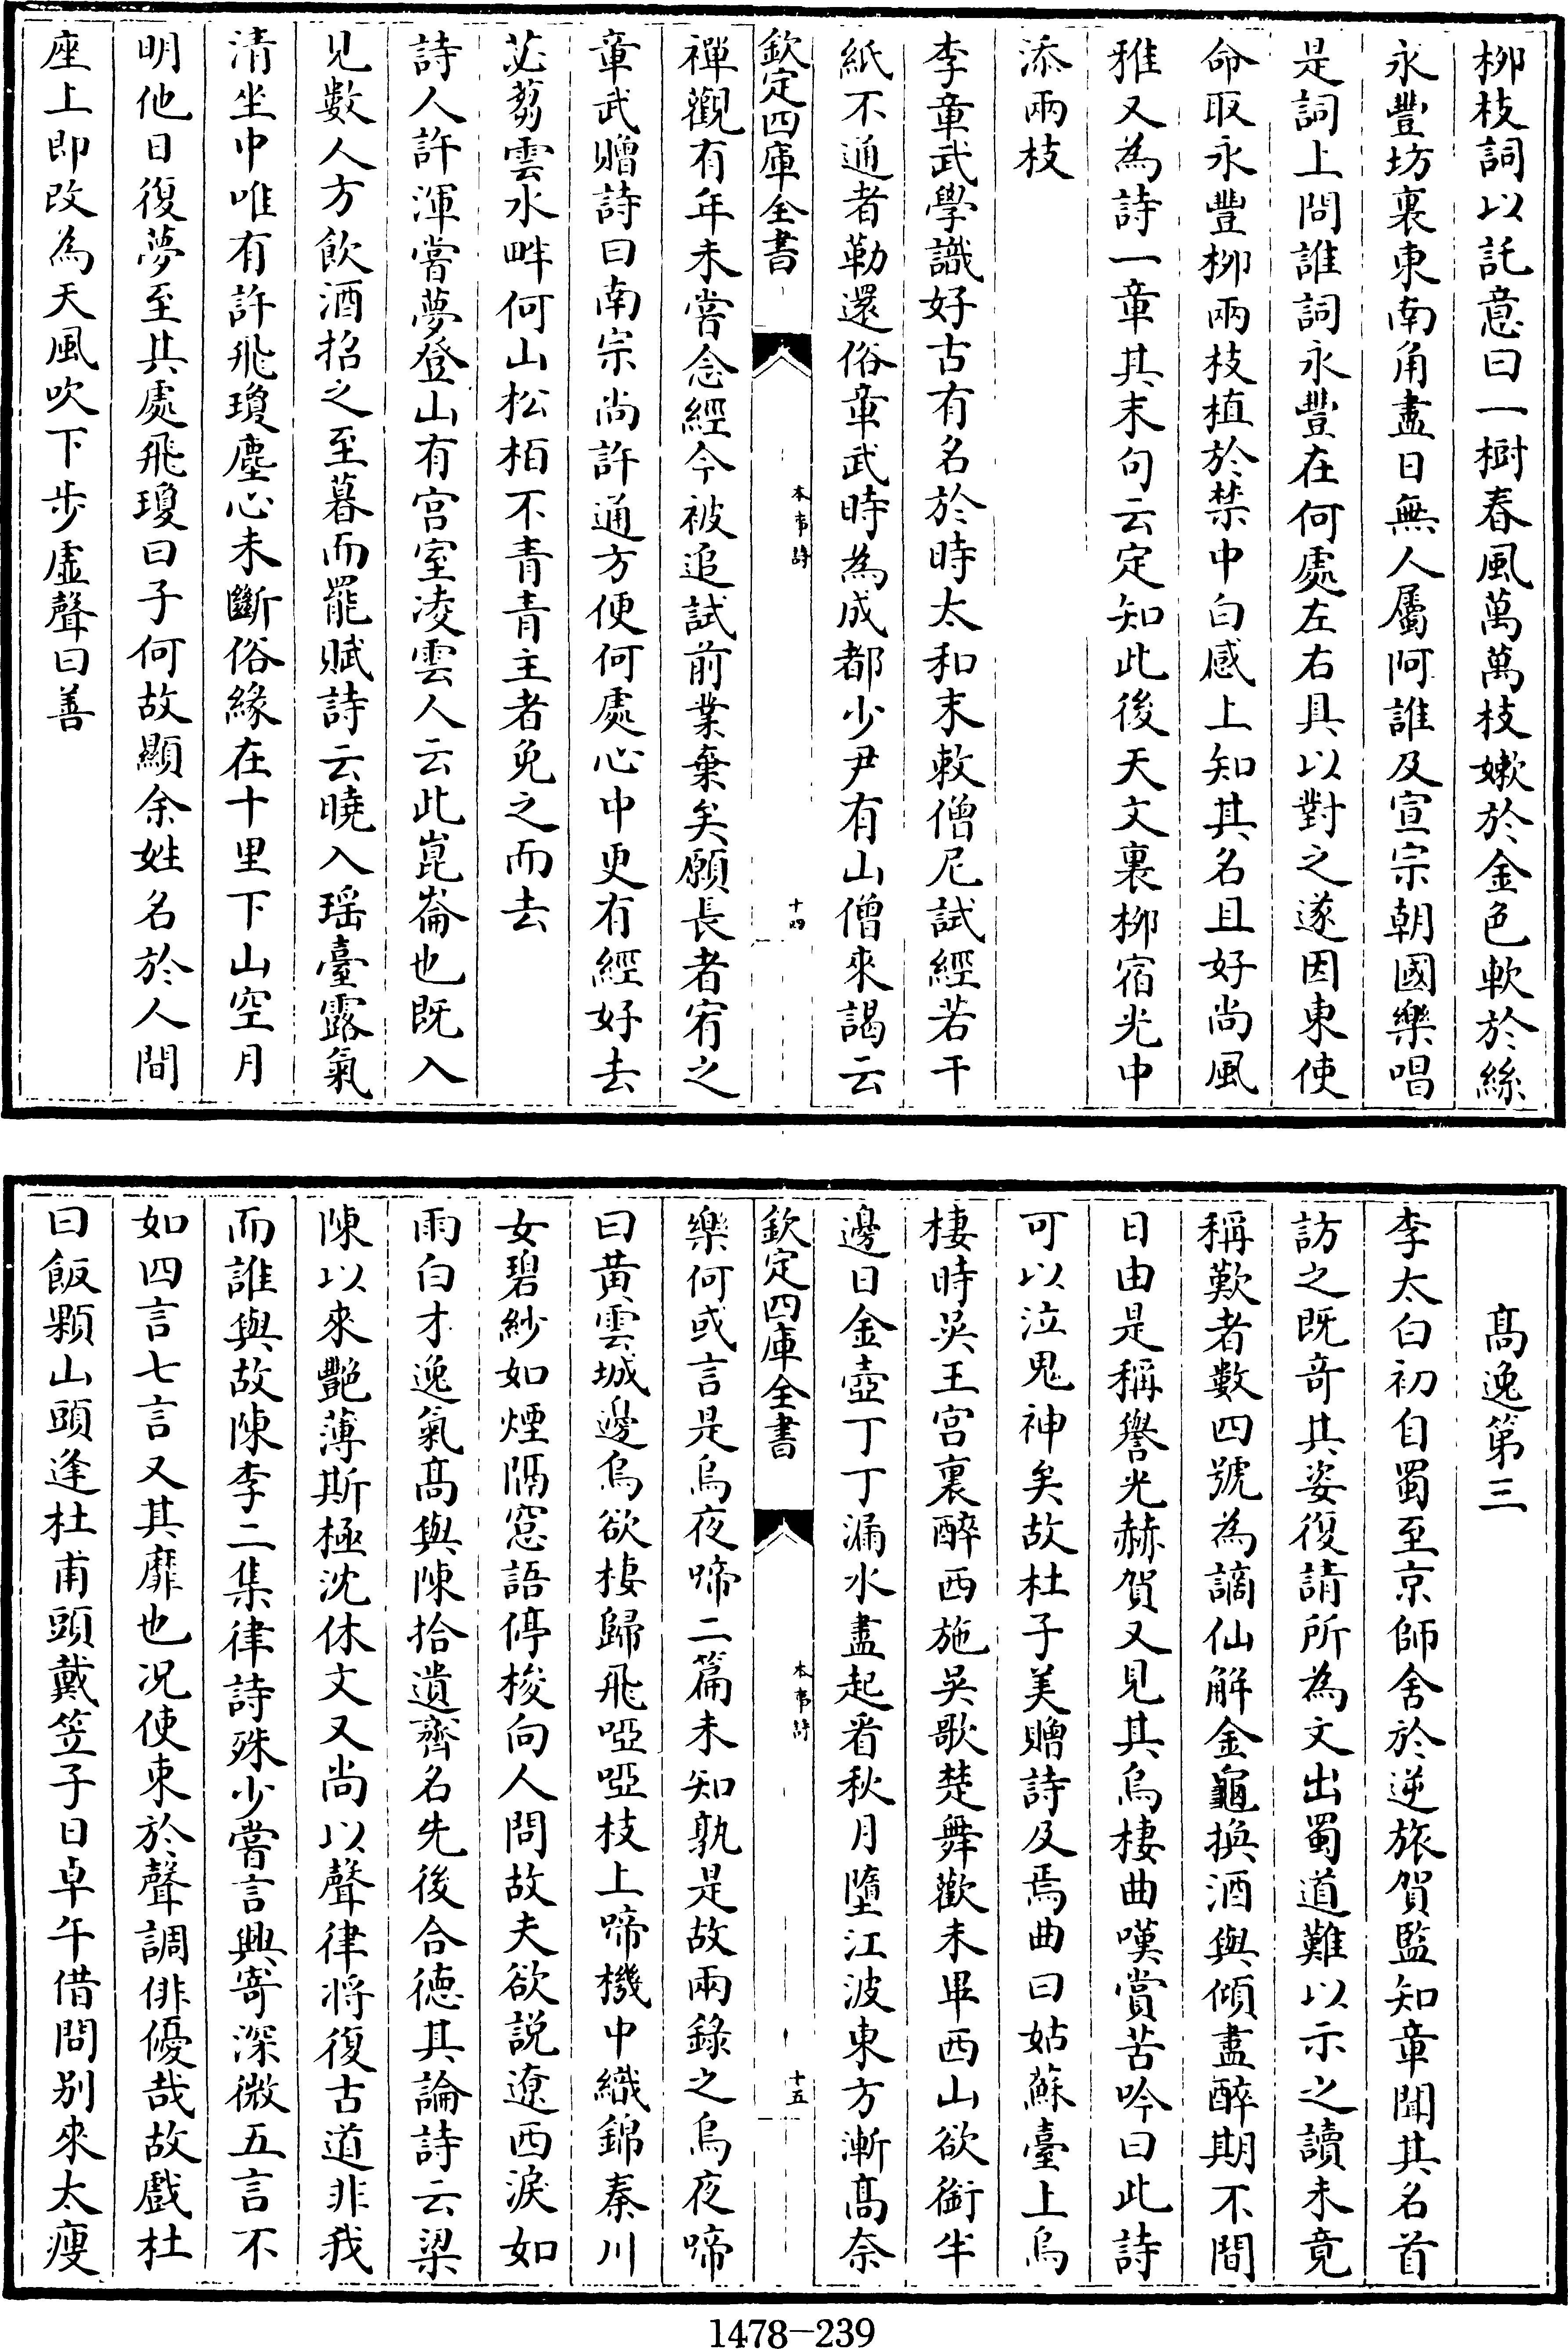 栁枝詞以託意曰一樹春風萬萬枝嫰於金色軟於絲
永豐坊裏東南角盡日無人屬阿誰及宣宗朝國樂唱
是詞上問誰詞永豐在何處左右具以對之遂因東使
命取永豐栁兩枝植於禁中白感上知其名且好尚風
雅又為詩一章其末句云定知此後天文裏栁宿光中
添兩枝
李章武學識好古有名於時太和末敕僧尼試經若干
紙不通者勒還俗章武時為成都少尹有山僧來謁云
欽定四庫全書
本事詩
十四
禪觀有年未嘗念經今被追試前業棄矣願長者宥之
章武贈詩曰南宗尚許通方便何處心中更有經好去
苾蒭雲水畔何山松柏不青青主者免之而去
詩人許渾嘗夢登山有宫室凌雲人云此崑崙也既入
見數人方飲酒招之至暮而罷賦詩云曉入瑶臺露氣
清坐中唯有許飛瓊塵心未斷俗緣在十里下山空月
明他日復夢至其處飛瓊曰子何故顯余姓名於人間
座上即改為天風吹下步虚聲曰善
髙逸第三
李太白初自蜀至京師舍於逆旅賀監知章聞其名首
訪之既奇其姿復請所為文出蜀道難以示之讀未竟
稱歎者數四號為謫仙解金龜換酒與傾盡醉期不間
日由是稱譽光赫賀又見其烏棲曲嘆賞苦吟曰此詩
可以泣鬼神矣故杜子美贈詩及焉曲曰姑蘇臺上烏
棲時吳王宫裏醉西施吳歌楚舞歡未畢西山欲銜半
邊日金壺丁丁漏水盡起看秋月墮江波東方漸髙奈
欽定四庫全書
本事詩
十五
樂何或言是烏夜啼二篇未知孰是故兩錄之烏夜啼
曰黄雲城邊烏欲棲歸飛啞啞枝上啼機中織錦秦川
女碧紗如煙隔窓語停梭向人問故夫欲説遼西淚如
雨白才逸氣髙與陳拾遺齊名先後合德其論詩云梁
陳以來艶薄斯極沈休文又尚以聲律將復古道非我
而誰與故陳李二集律詩殊少嘗言興寄深微五言不
如四言七言又其靡也况使束於聲調俳優哉故戲杜
曰飯顆山頭逢杜甫頭戴笠子日卓午借問别來太瘦
1478-239